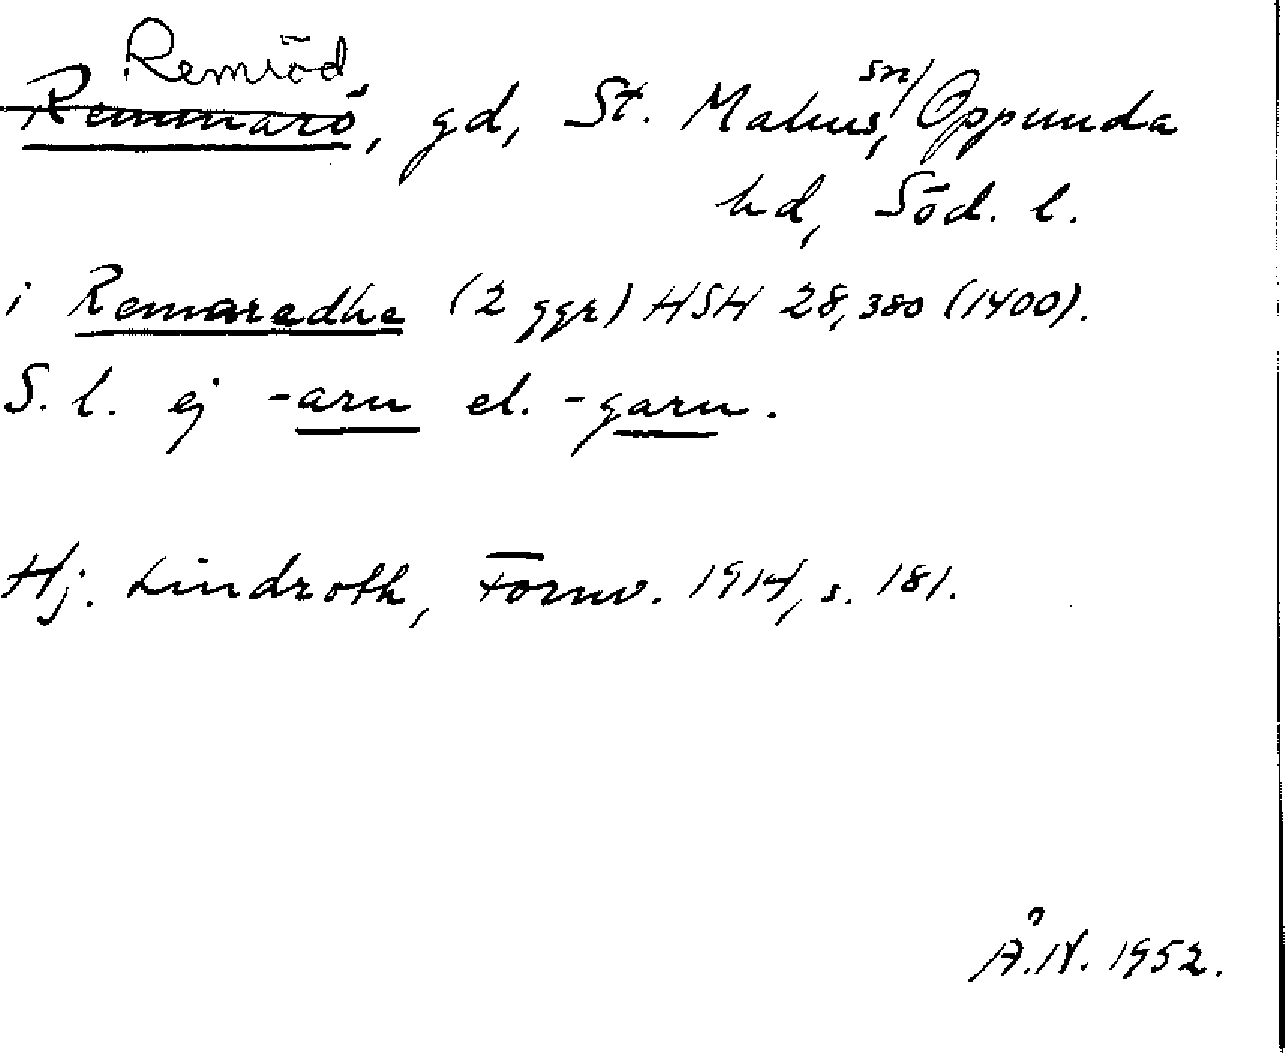 Remröd
Remmarö, gd, St. Malms sn, Oppunda
hd, Söd. l.
i Remaradhe (2 ggr) HSH 28, 380 (1400).
S. l. ej -arn el. -garn.
Hj. Lindroth, Fornv. 1914, s. 181.
Å.N. 1952.